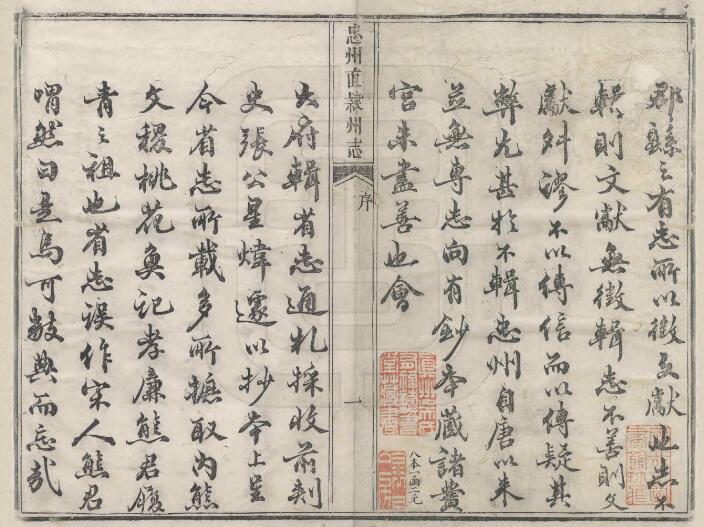 郡縣之有志所以徵文獻也志不
輯則文獻無徵輯志不善則文
獻舛漻不以傳信而以傳疑其
弊尤甚於不輯忠州自唐以來
並無專志向有鈔本藏諸黌
宮未盡善也會
八本一函二元
忠州直隸州志
序
一
大府輯省志通札採收前刺
史張公星煒遽以抄本上呈
今省志所載多所摭取內熊
文稷桃花魚記孝廉熊君履
青之祖也省志誤作宋人熊君
喟然曰是烏可數典而忘哉